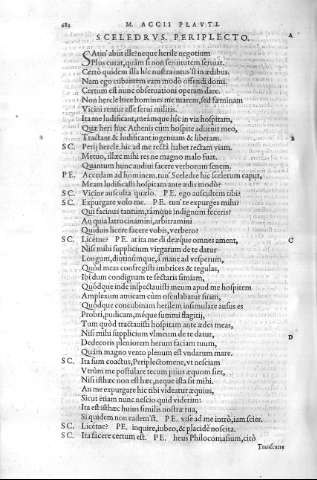 682 M. ACCII PLAVTI.
SCELEDRVS. PERIPLECTO. A
SAtin' abiit ille: neque hercle negotium
Plus curat, quàm si non seruitutem seruiat.
Certò quidem illa hîc nostra intus'st in ædibus.
Nam ego cubantem eam modò offendi domi.
Certum est nunc obseruationi operam dare.
Non hercle hice homines me marem, sed fœminam
Vicini rentur esse serui militis.
Ita me ludificant, meámque hîc in via hospitam,
Quæ heri huc Athenis cum hospite aduenit meo, B
Tractant & ludificant ingenuam & liberam.
SC. Perij hercle. hic ad me rectà habet rectam viam.
Metuo, illæc mihi res ne magno malo fuat.
Quantum hunc audiui facere verborum senem.
PE. Accedam ad hominem. tun' Sceledre hîc scelerum caput,
Meam ludificasti hospitam ante ædis modò?
SC. Vicine ausculta quæso. PE. ego auscultem tibi?
SC. Expurgare volo me. PE. tun' te expurges mihi?
Qui facinus tantum, támque indignum feceris?
An quia latrocinamini, arbitramini
Quiduis licere facere vobis, verbero?
SC. Licétne? PE. at ita me di deæque omnes ament, C
Nisi mihi supplicium virgarum de te datur
Longum, diutinúmque, à mane ad vesperum,
Quòd meas confregisti imbrices & tegulas,
Ibi dum condignam te sectaris simiam,
Quódque inde inspectauisti meum apud me hospitem
Amplexum amicam cùm osculabatur suam,
Quódque concubinam herilem insimulare ausus es
Probri, pudicam, méque summi flagitij,
Tum quòd tractauisti hospitam ante ædeis meas,
Nisi mihi supplicium vlmeum de te datur, D
Dedecoris pleniorem herum faciam tuum,
Quàm magno vento plenum est vndarum mare.
SC. Ita sum coactus, Periplectomene, vt nesciam
Vtrùm me postulare tecum priùs æquom siet,
Nisi isthæc non est hæc, neque ista sit mihi.
An me expurgare hîc tibi videatur æquius,
Sicut etiam nunc nescio quid viderim:
Ita est isthæc huius similis nostra tua,
Si quidem non eadem'st. PE. vise ad me intrò, iam scies.
SC. Licétne? PE. inquire, iubeo, & placidè noscita.
SC. Ita facere certum est. PE. heus Philocomasium, citò
Transcurre